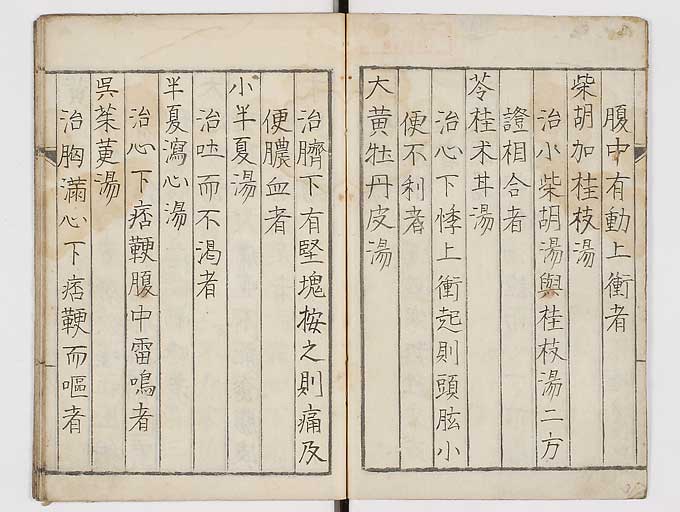 腹中有動上衝者
柴胡加桂枝湯
治小柴胡湯與桂枝湯二方
證相合者
苓桂朮甘湯
治心下悸上衝起則頭眩小
便不利者
大黃牡丹皮湯
治臍下有堅塊按之則痛及
便膿血者
小半夏湯
治吐而不渴者
半夏瀉心湯
治心下痞鞕腹中雷鳴者
吳茱萸湯
治胸滿心下痞鞕而嘔者